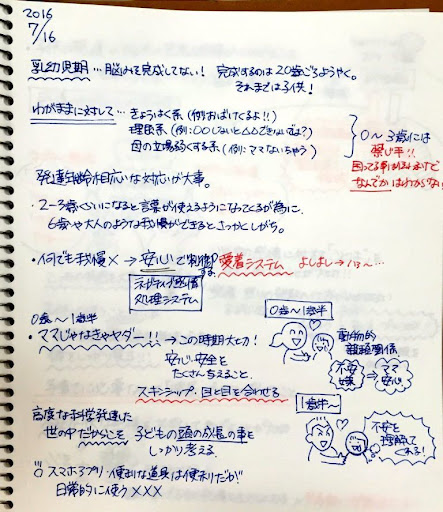 2016
7/16
乳幼児期…脳みそ完成してない! 完成するのは20歳ごろようやく。
それまでは子供!
わがままに対して…きょうはく系(例:おばけくるよ!!)
理屈系(例:〇〇しないと△△できないでしょ?)
母の立場弱くする系(例:ママなっちゃう)
0〜3歳には
禁じ手!!
困ってる事はわかるけど
なんでかはわからない
発達年齢相応な対応が大事。
・2〜3歳ぐらいになると言葉が使えるようになってくるが為に、
6歳や大人のような我慢ができるとさっかくしがち。
・何でも我慢× → 安心で制御する。愛着システム よしよし→ほ〜…
ネガティブ感情
処理システム
0歳〜1歳半
・ママじゃなきゃヤダー!! → この時期大切!
安心・安全を
たくさん与えること。
スキンシップ・目と目を合わせる
0歳〜1歳半
動物的
親子関係
不安
ママ
安心
高度な科学発達した
世の中だからこそ 子どもの頭の成長の事を
しっかり考える
1歳半〜
不安を
理解して
くれる!
スマホアプリ・便利な道具は便利だが
日常的に使う×××